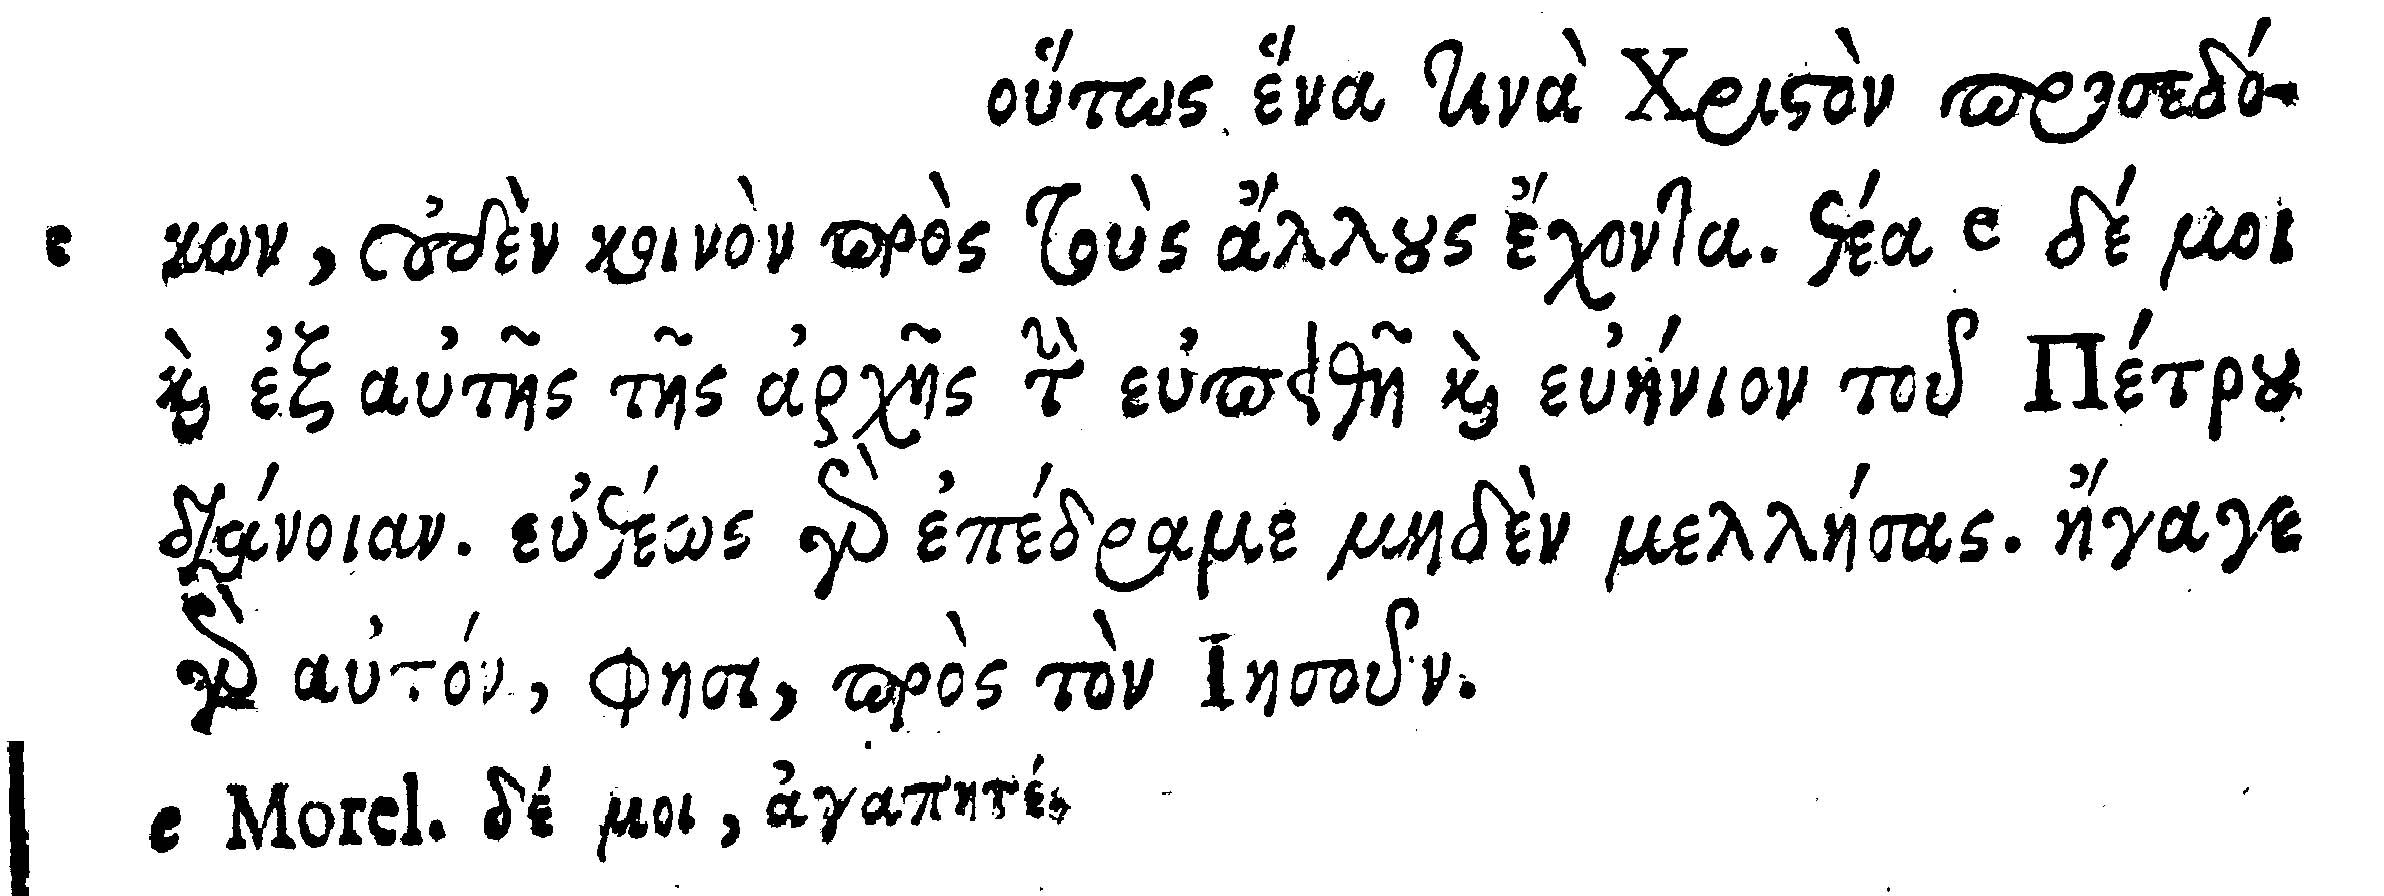 οὕτως ἕνα τινὰ Χριστὸν προσεδό-
e κων, οὐδὲν κοινὸν πρὸς τοὺς ἄλλους ἔχοντα. θέα e δέ μοι
καὶ ἐξ αὐτῆς τῆς ἀρχῆς τὴν εὐπειθῆ καὶ εὐήνιον τοῦ Πέτρου
διάνοιαν. εὐθέως γὰρ ἐπέδραμε μηδὲν μελλήσας. ἤγαγε
γὰρ αὐτόν, φησι, πρὸς τὸν Ιησοῦν.
e Morel. δέ μοι, ἀγαπητέ,